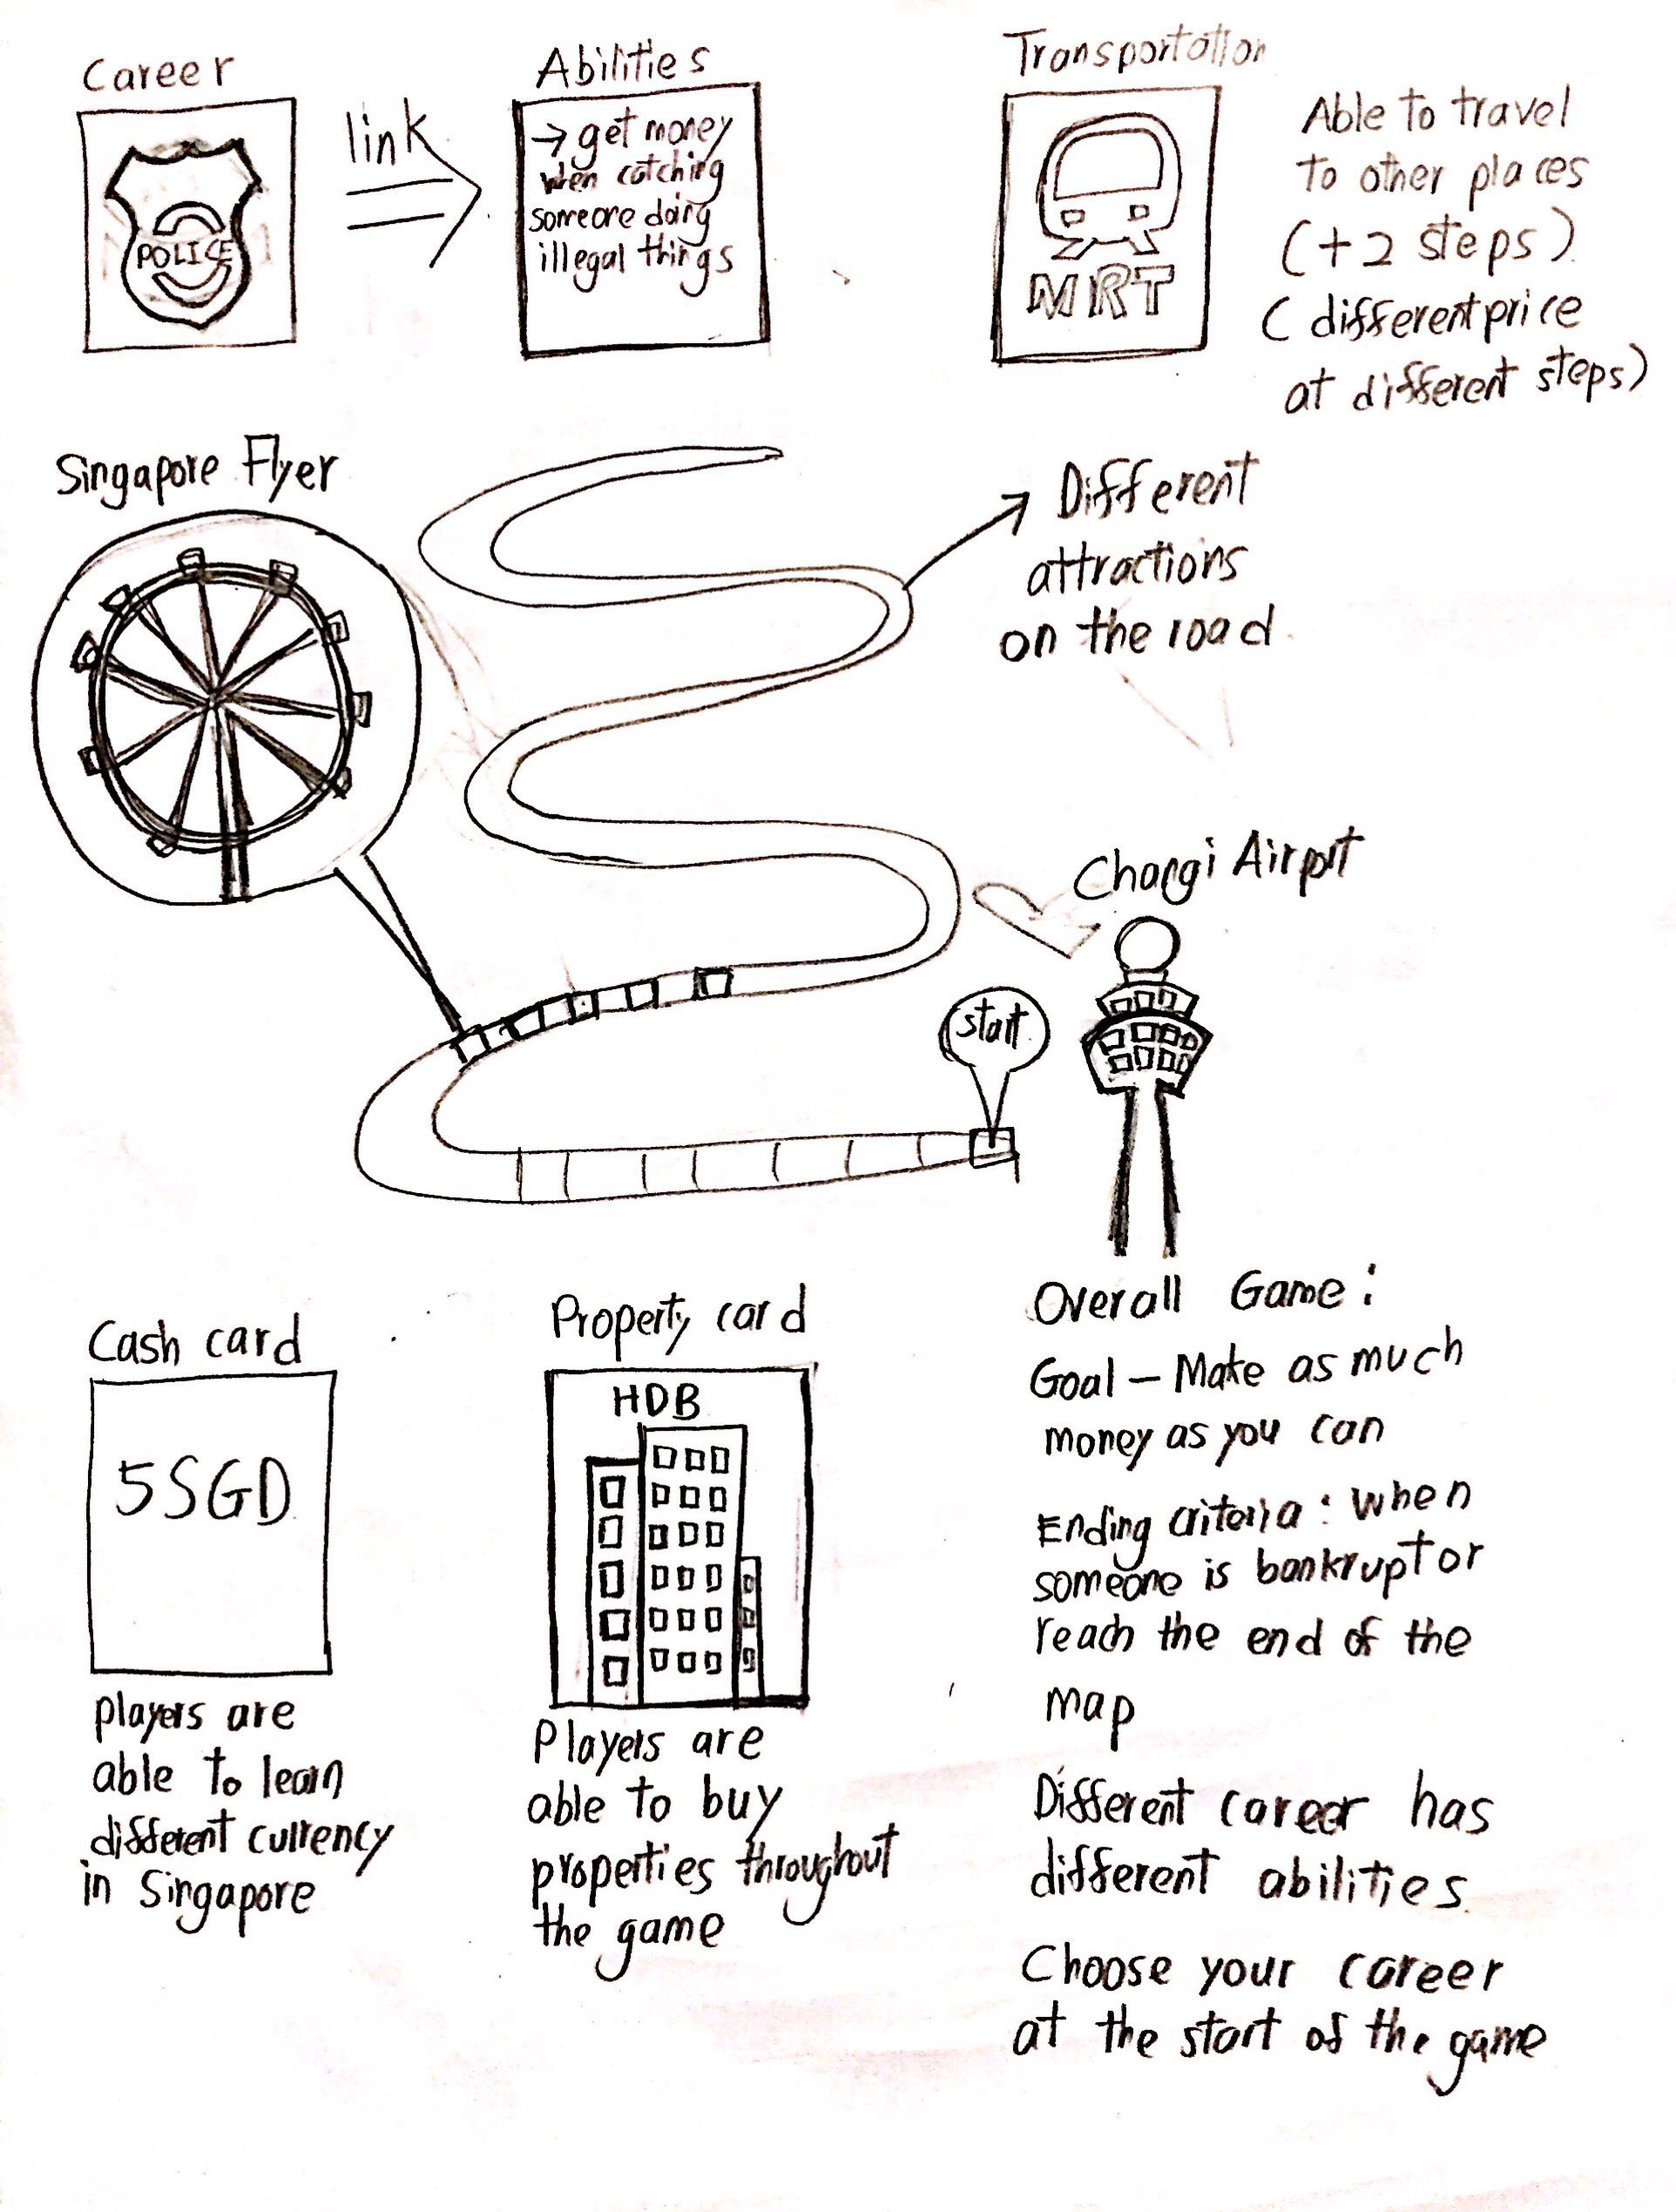 Career
POLICE
link
Abilities
→ get money
when catching
someone doing
illegal things
Transportation
MRT
Able to travel
to other places
(+2 steps)
(different price
at different steps)
Singapore Flyer
Different
attractions
on the road
Changi Airport
start
Cash card
5 SGD
players are
able to learn
different currency
in Singapore
Property card
HDB
Players are
able to buy
properties throughout
the game
Overall Game:
Goal – Make as much
money as you can
Ending criteria: when
someone is bankrupt or
reach the end of the
map
Different career has
different abilities.
Choose your career
at the start of the game